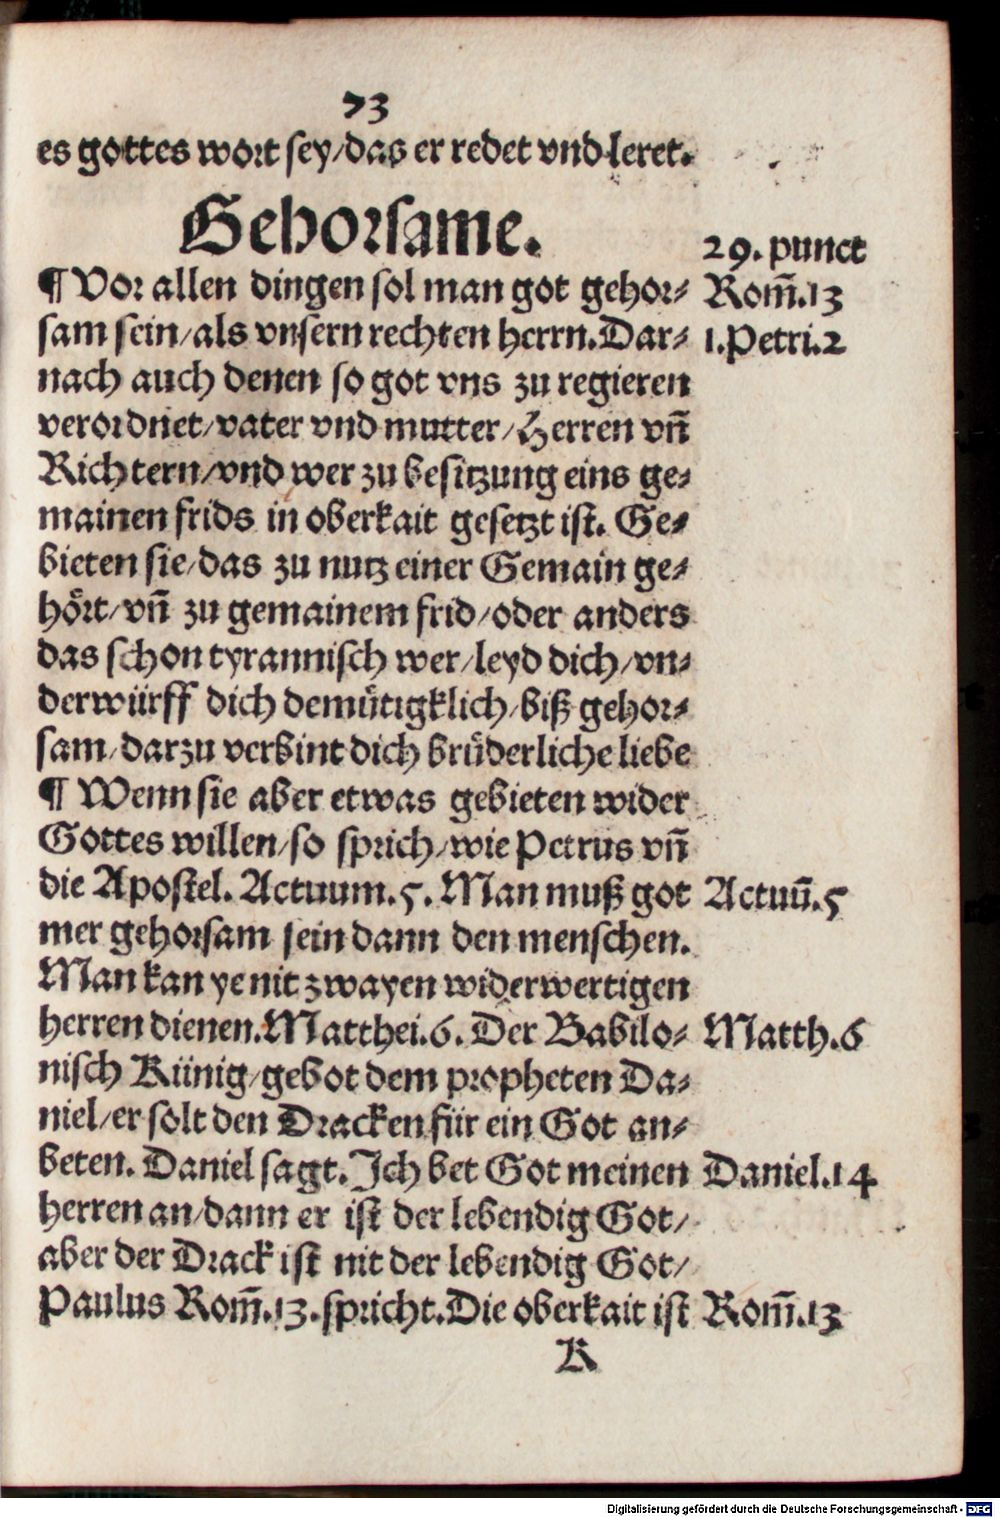 73
es gottes wort sey/das er redet vnd leret.
Gehorsame.
29. punct
¶ Vor allen dingen sol man got gehor⸗ Rom̃.13
sam sein/als vnsern rechten herrn.Dar⸗ 1.Petri.2
nach auch denen so got vns zu regieren
verordnet/vater vnd mutter/Herren vñ
Richtern/vnd wer zu besitzung eins ge⸗
mainen frids in oberkait gesetzt ist. Ge⸗
bieten sie/das zu nutz einer Gemain ge⸗
hoͤrt/vñ zu gemainem frid/oder anders
das schon tyrannisch wer/leyd dich/vn⸗
derwürff dich demuͤtigklich/biß gehor⸗
sam/darzu verbint dich bruͤderliche liebe
¶ Wenn sie aber etwas gebieten wider
Gottes willen/so sprich/wie Petrus vñ
die Apostel. Actuum.5. Man muß got Actuũ.5
mer gehorsam sein dann den menschen.
Man kan ye nit zwayen widerwertigen
herren dienen.Matthei.6. Der Babilo⸗ Matth.6
nisch Künig/gebot dem propheten Da⸗
niel/er solt den Dracken für ein Got an⸗
beten. Daniel sagt.Ich bet Got meinen Daniel.14
herren an/dann er ist der lebendig Got/
aber der Drack ist nit der lebendig Got/
Paulus Rom̃.13.spricht.Die oberkait ist Rom̃.13
K
Digitalisierung gefördert durch die Deutsche Forschungsgemeinschaft - DFG